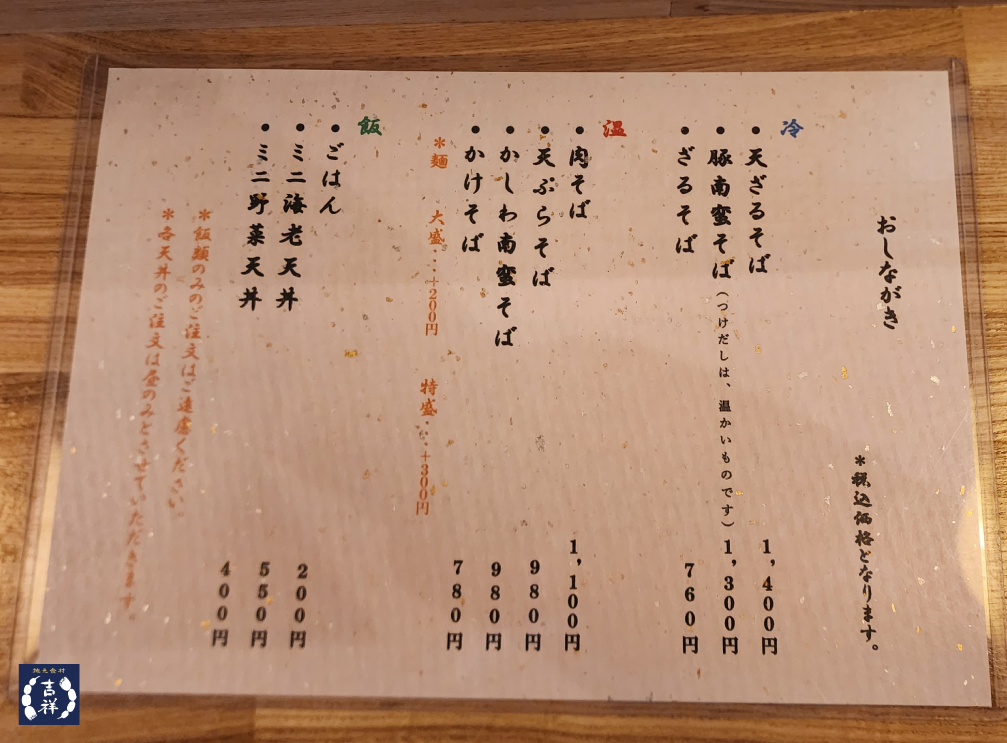 おしながき
*税込価格となります。
冷
●天ざるそば 1,400円
●豚南蛮そば（つけだしは、温かいものです） 1,300円
●ざるそば 760円
温
●肉そば 1,100円
●天ぷらそば 980円
●かしわ南蛮そば 980円
●かけそば 780円
*麺 大盛・・・+200円 特盛・・・+300円
飯
●ごはん 200円
●ミニ海老天丼 550円
●ミニ野菜天丼 400円
*飯類のみのご注文はご遠慮ください。
*各天丼のご注文は昼のみとさせていただきます。
地元食材
吉祥